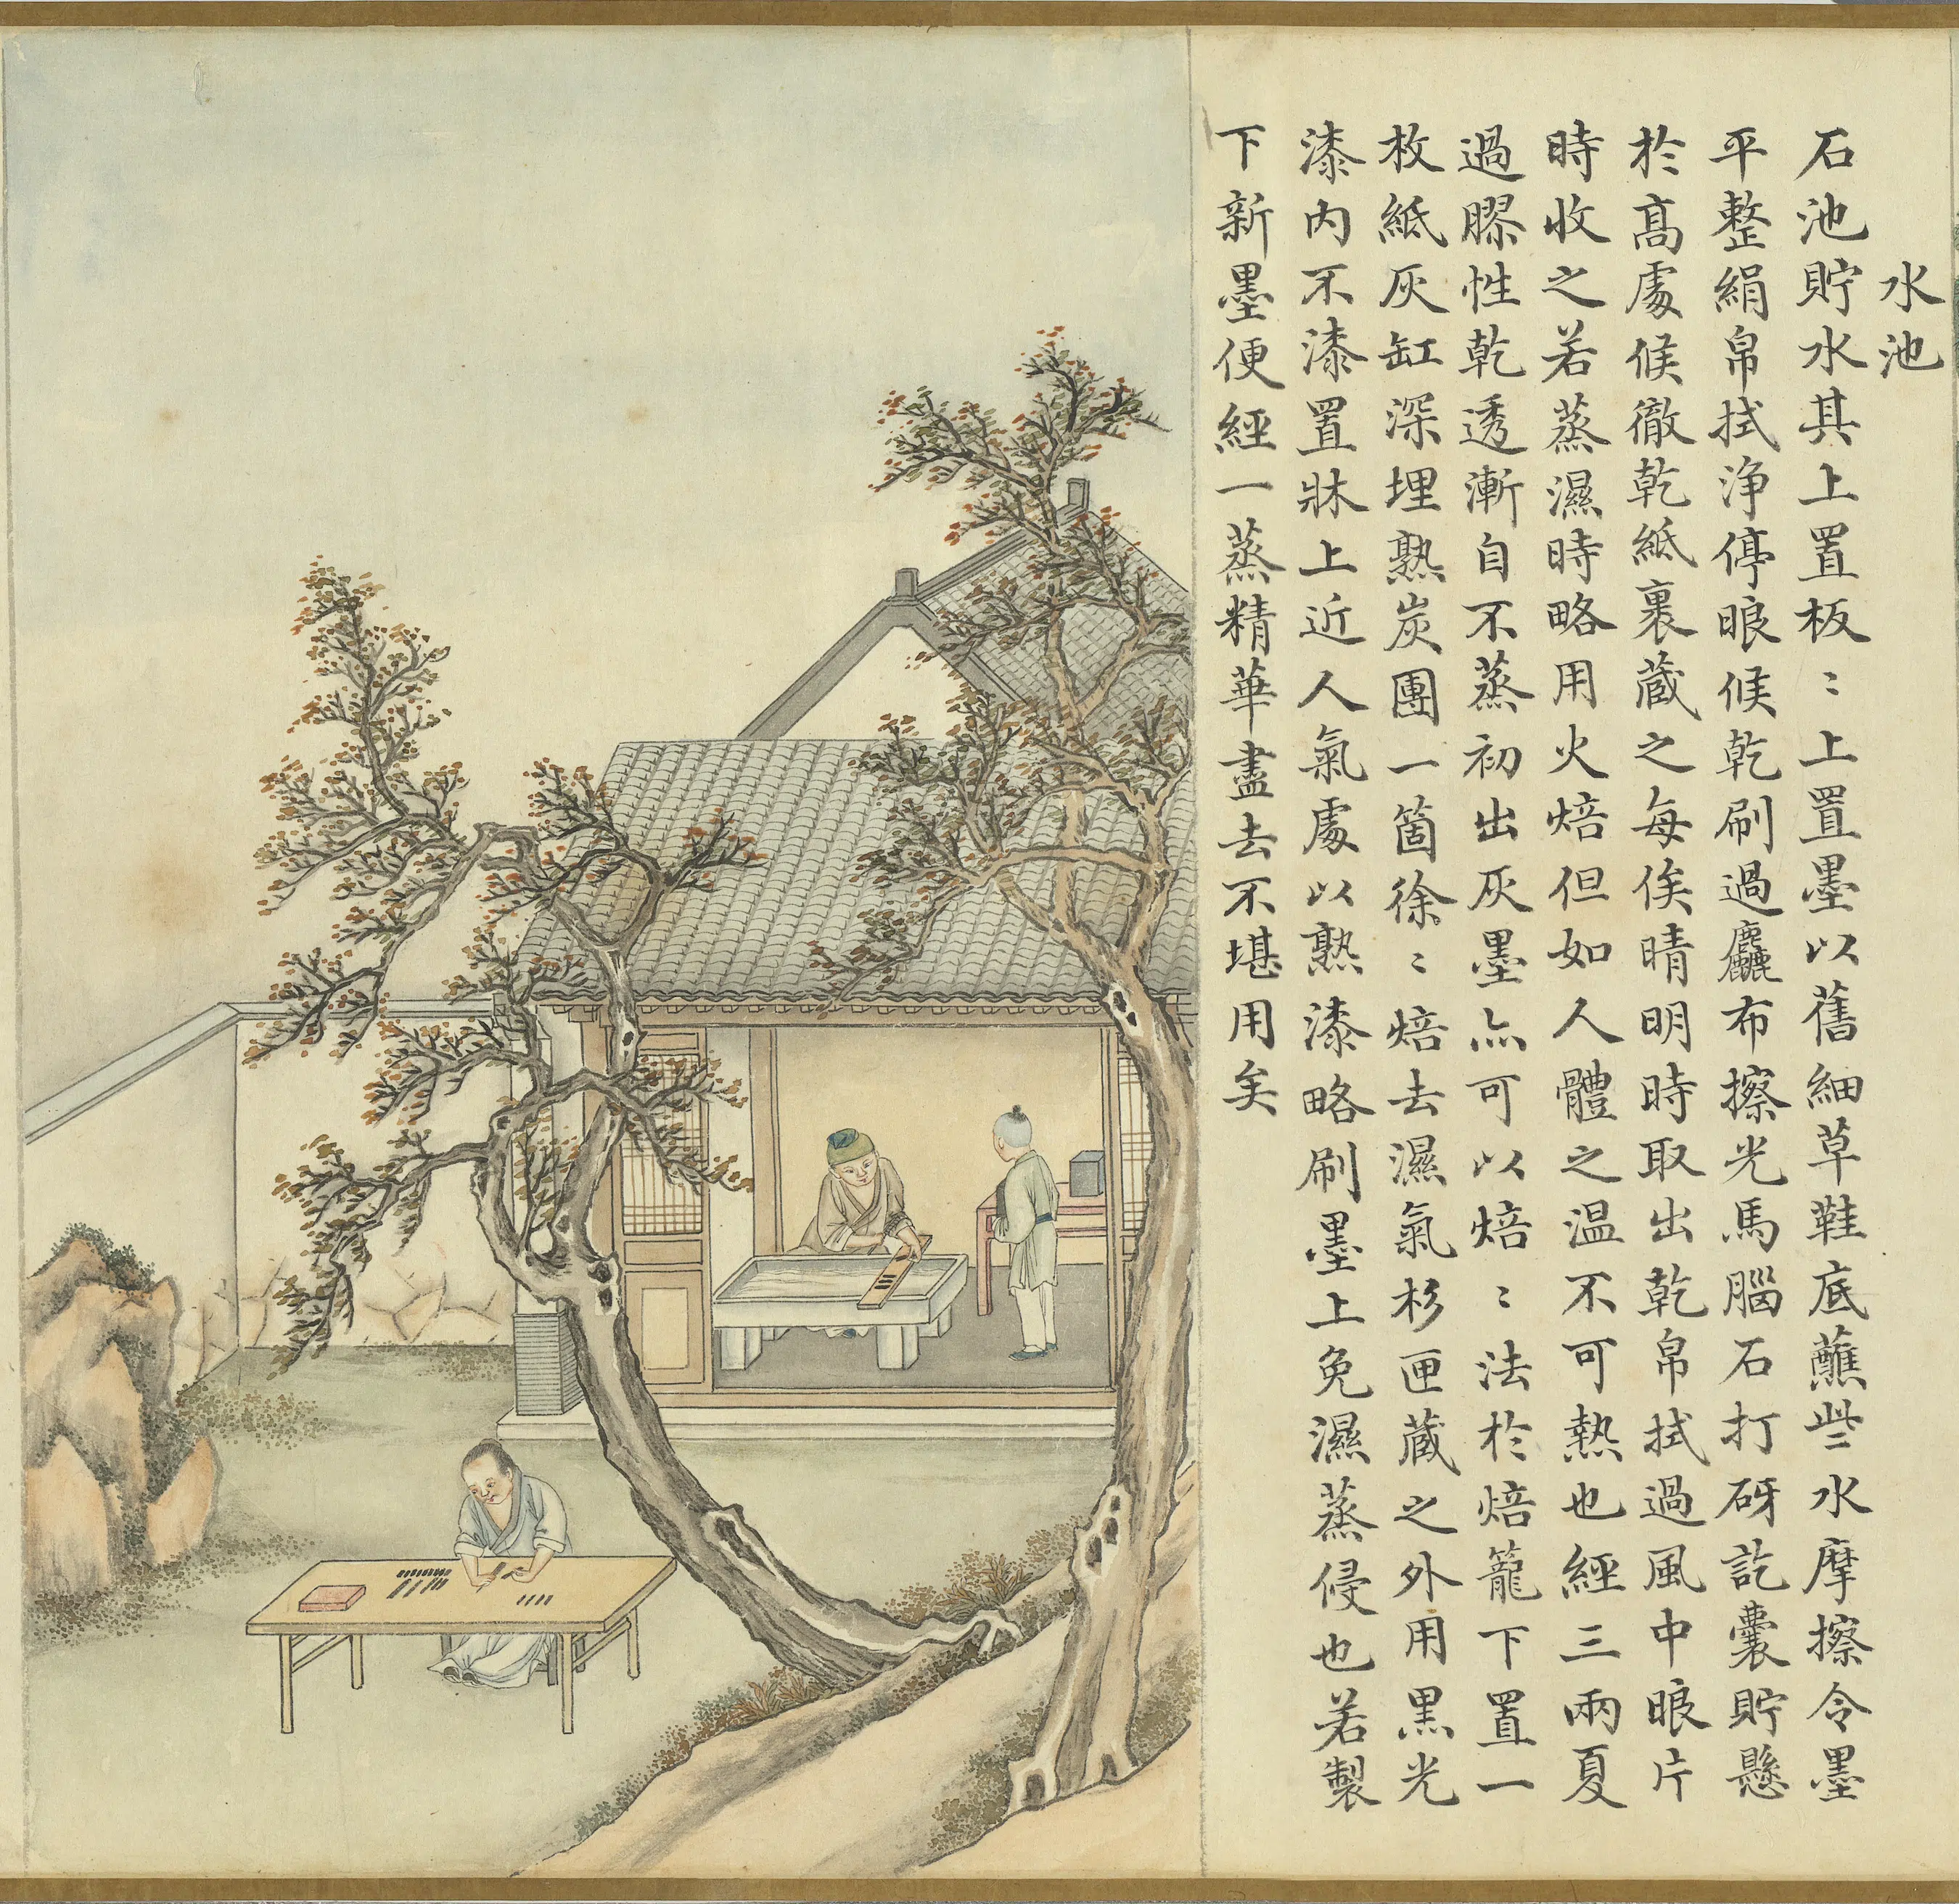 水池
石池貯水其上置板〻上置墨以舊細草鞋底蘸些水摩擦令墨
平整絹帛拭淨停眼候乾刷過麤布擦光馬腦石打砑訖囊貯懸
於髙處候徹乾紙裹藏之每俟晴明時取出乾帛拭過風中眼片
時收之若蒸濕時略用火焙但如人體之温不可熱也經三兩夏
過膠性乾透漸自不蒸初出灰墨亦可以焙〻法於焙籠下置一
枚紙灰缸深埋熟炭團一箇徐〻焙去濕氣杉匣藏之外用黒光
漆内不漆置牀上近人氣處以熟漆略刷墨上免濕蒸侵也若製
下新墨便經一蒸精華盡去不堪用矣